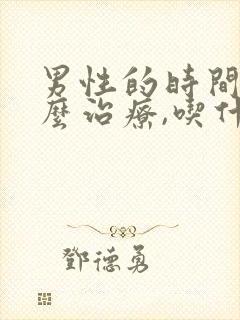 男性的時間
麼治療,喫什
鄧德勇